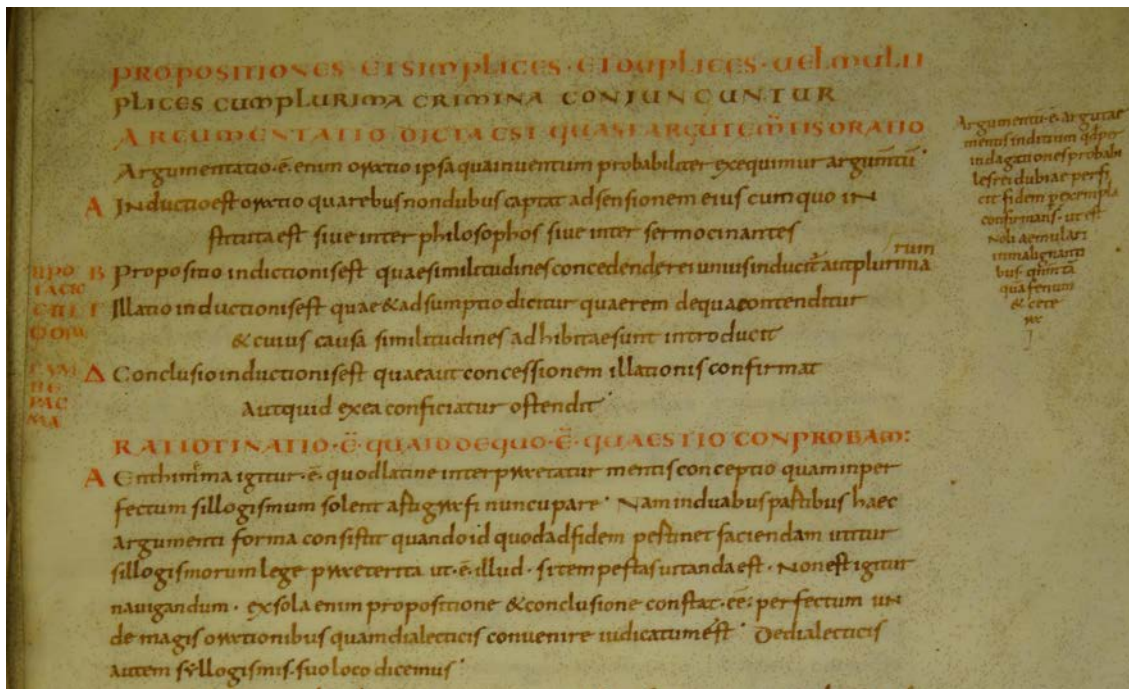 PROPOSITIONES · ET SIMPLICES · ET DUPLICES · UEL MULTI
PLICES CUM PLURIMA CRIMINA CONJUNCUNTUR
ARCUMENTATIO DICTA EST QUASI ARGUTE M̄TIS ORATIO
Argumentatio · ē · enim oratio ipsa qua inuentum probabiliter exequimur argum̄tū
A INductio est oratio qua rebus non dubus captat adsensionem eius cum quo IN
stituta est siue inter philosophos siue inter sermocinantes
B Propositio inductionis est quae similitudines concedende rei unius inducit aut plurima
rum
Γ Illatio inductionis est quae & adsumptio dicitur quae rem de qua contenditur
& cuius causa similitudines adhibitae sunt introducit
Δ Conclusio inductionis est quae aut concessionem illationis confirmat
Aut quid ex ea conficiatur ostendit
RATIOTINATIO · ē · QUA ID DE QUO · ē · QUAESTIO CONPROBAM:
A Enthimema igitur · ē · quod latine interpraetatur mentis conceptio quam inper
fectum sillogismum solent astigrafi nuncupare Nam in duabus partibus haec
argumenti forma consistit quando id quod ad fidem pertinet faciendam utitur
sillogismorum lege praeterita ut · ē · illud · si tempestas uitanda est · Non est igitur
nauigandum · ex sola enim propositione & conclusione constat · eē · perfectum uN
de magis orationibus quam dialecticis conuenire iudicatum est Dedialecticis
autem syllogismis suo loco dicemus
Argumentū · ē · argutae
mentis inditium qd per
indagationes probabi
les rei dubiae perfi
cit fidem p exempla
confirmans · ut est
Noli aemulari
in malignanti
bus qm̄ tā
qua fenum
& cete
ra